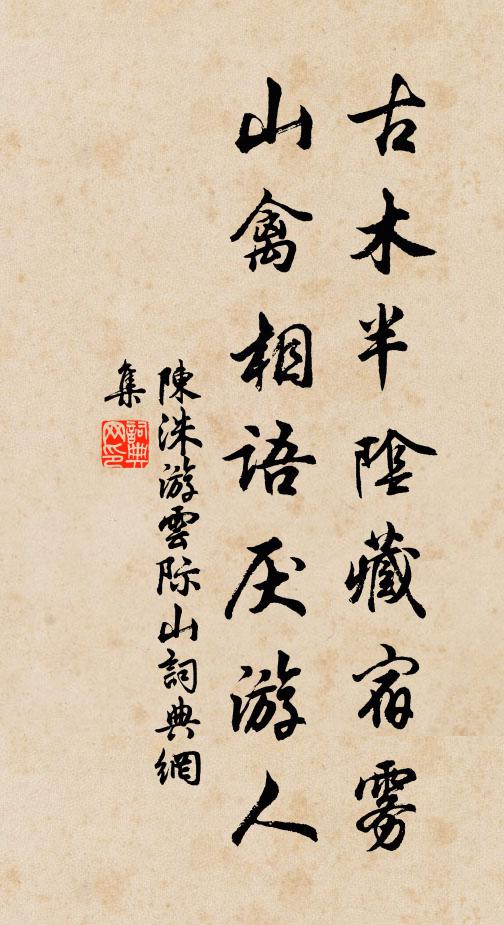 古木半陰藏宿雾
山禽相語厌游人
陳洙游雲际山詞典網
集
詞典
网印